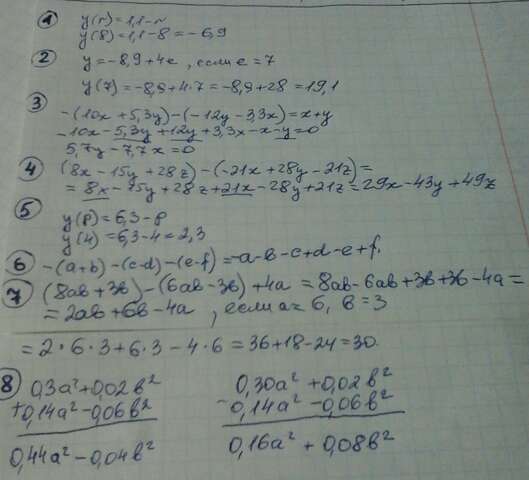 1 y(r)=1,1-r
y(8)=1,1-8=-6,9
2 y=-8,9+4e, если e=7
y(7)=-8,9+4·7=-8,9+28=19,1
3 -(10x+5,3y)-(-12y-3,3x)=x+y
-10x-5,3y+12y+3,3x-x-y=0
5,7y-7,7x=0
4 (8x-15y+28z)-(-21x+28y-21z)=
=8x-15y+28z+21x-28y+21z=29x-43y+49z
5 y(p)=6,3-p
y(4)=6,3-4=2,3
6 -(a+b)-(c-d)-(e-f)=-a-b-c+d-e+f.
7 (8ab+3b)-(6ab-3b)+4a=8ab-6ab+3b+3b-4a=
=2ab+6b-4a, если a=6, b=3
=2·6·3+6·3-4·6=36+18-24=30.
8 0,3a²+0,02b² 0,30a²+0,02b²
+0,14a²-0,06b² -0,14a²-0,06b²
0,44a²-0,04b² 0,16a²+0,08b²